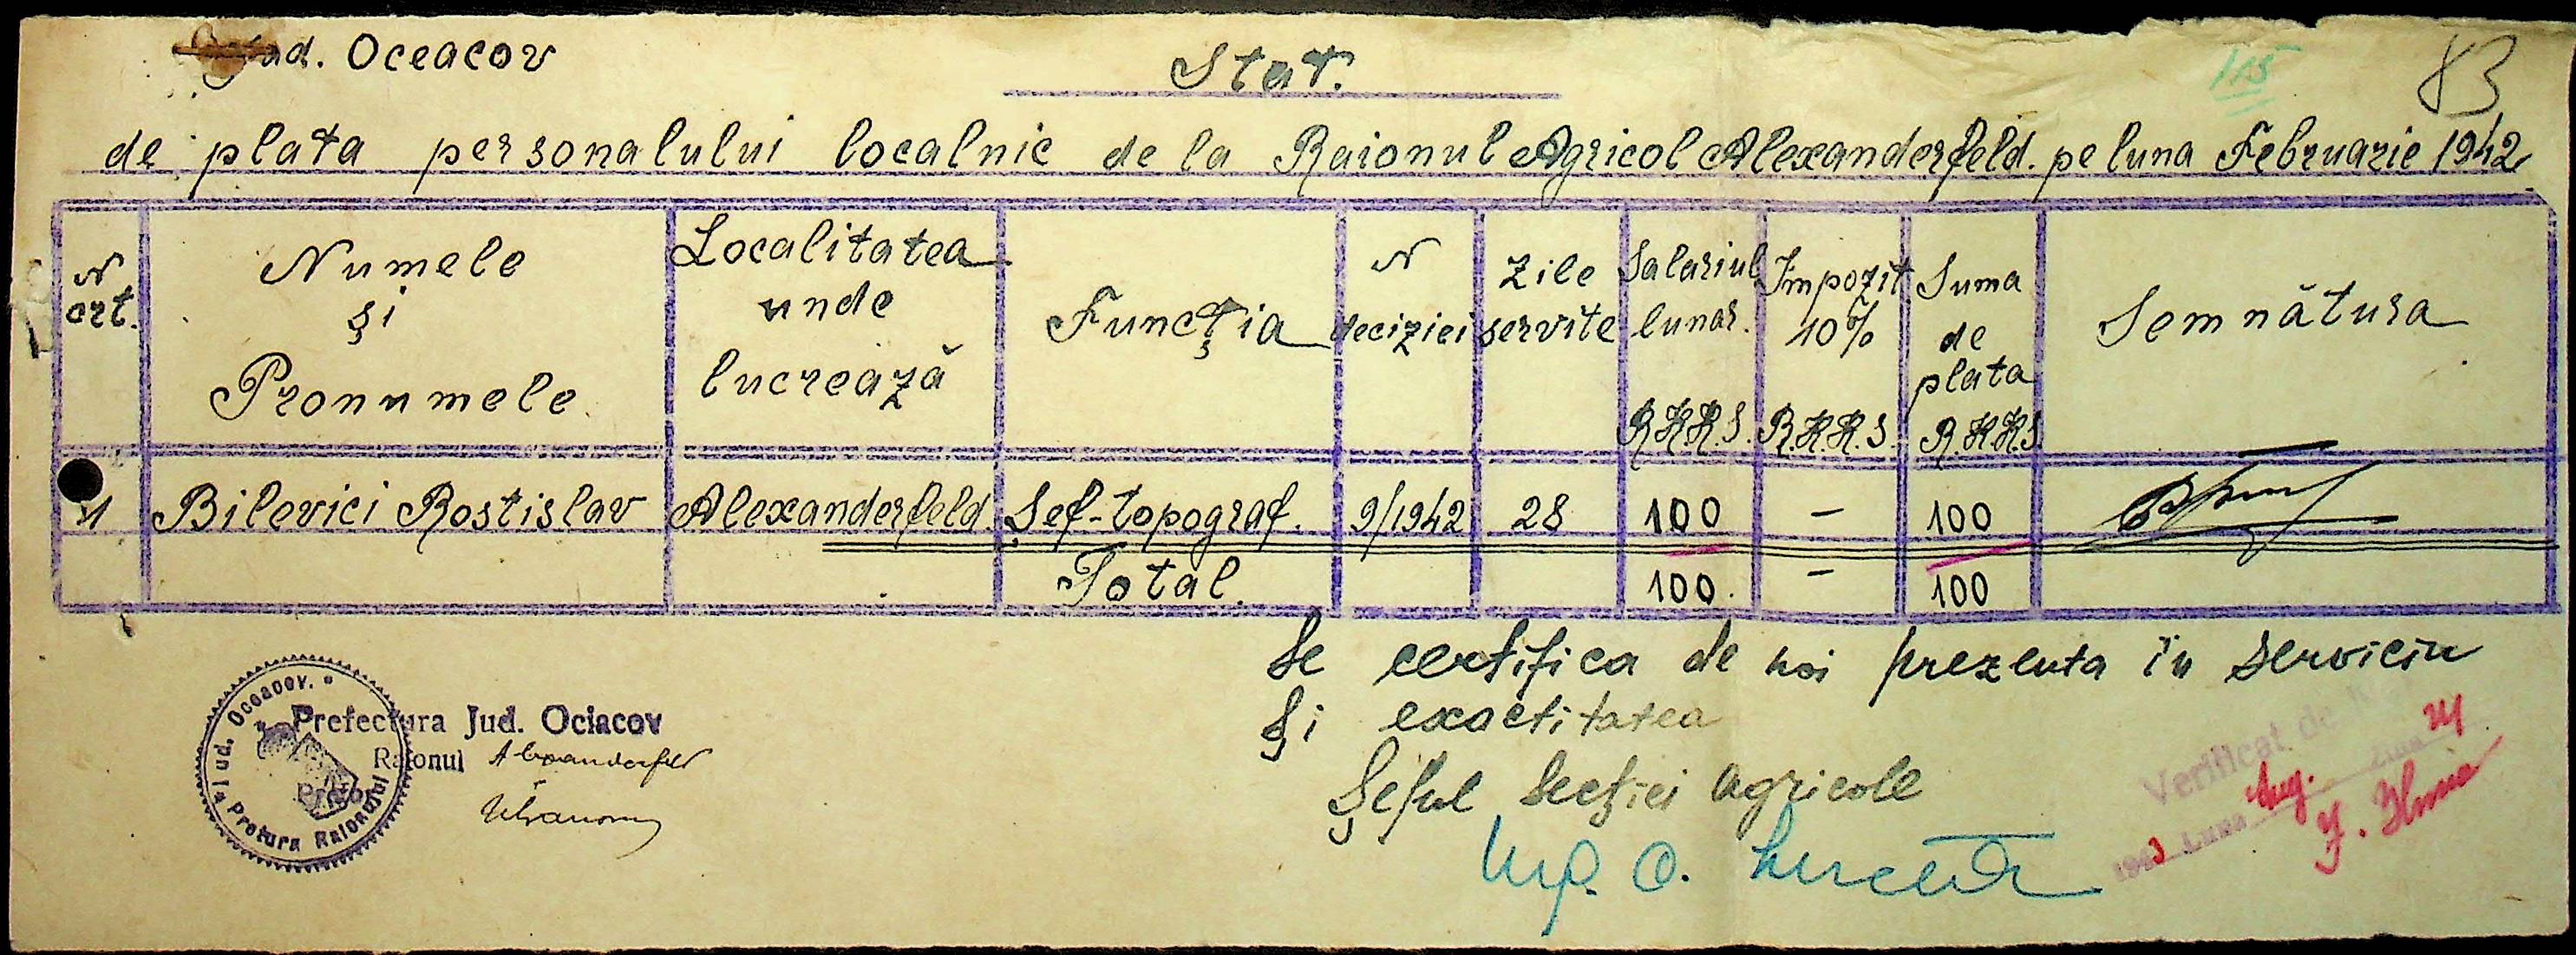 Jud. Oceacov
Stat.
115
83
de plata personalului localnic de la Raionul Agricol Alexanderfeld. pe luna Februarie 1942
N crt.
Numele și Pronumele
Localitatea unde lucrează
Funcția
N deciziei
Zile servite
Salariul lunar. R.K.K.S.
Impozit 10% R.K.K.S.
Suma de plata R.K.K.S.
Semnătura
1 Bilevici Rostislav Alexanderfeld. Șef-topograf. 9/1942 28 100 — 100
Total. 100. — 100
Se certifica de noi prezenta în serviciu
și exactitatea
Șeful Secției Agricole
Prefectura Jud. Ociacov
Raionul Alexanderfeld
Pretor
Jud. Oceacov.
Pretura Raionului
Verificat de
Luna Aug.